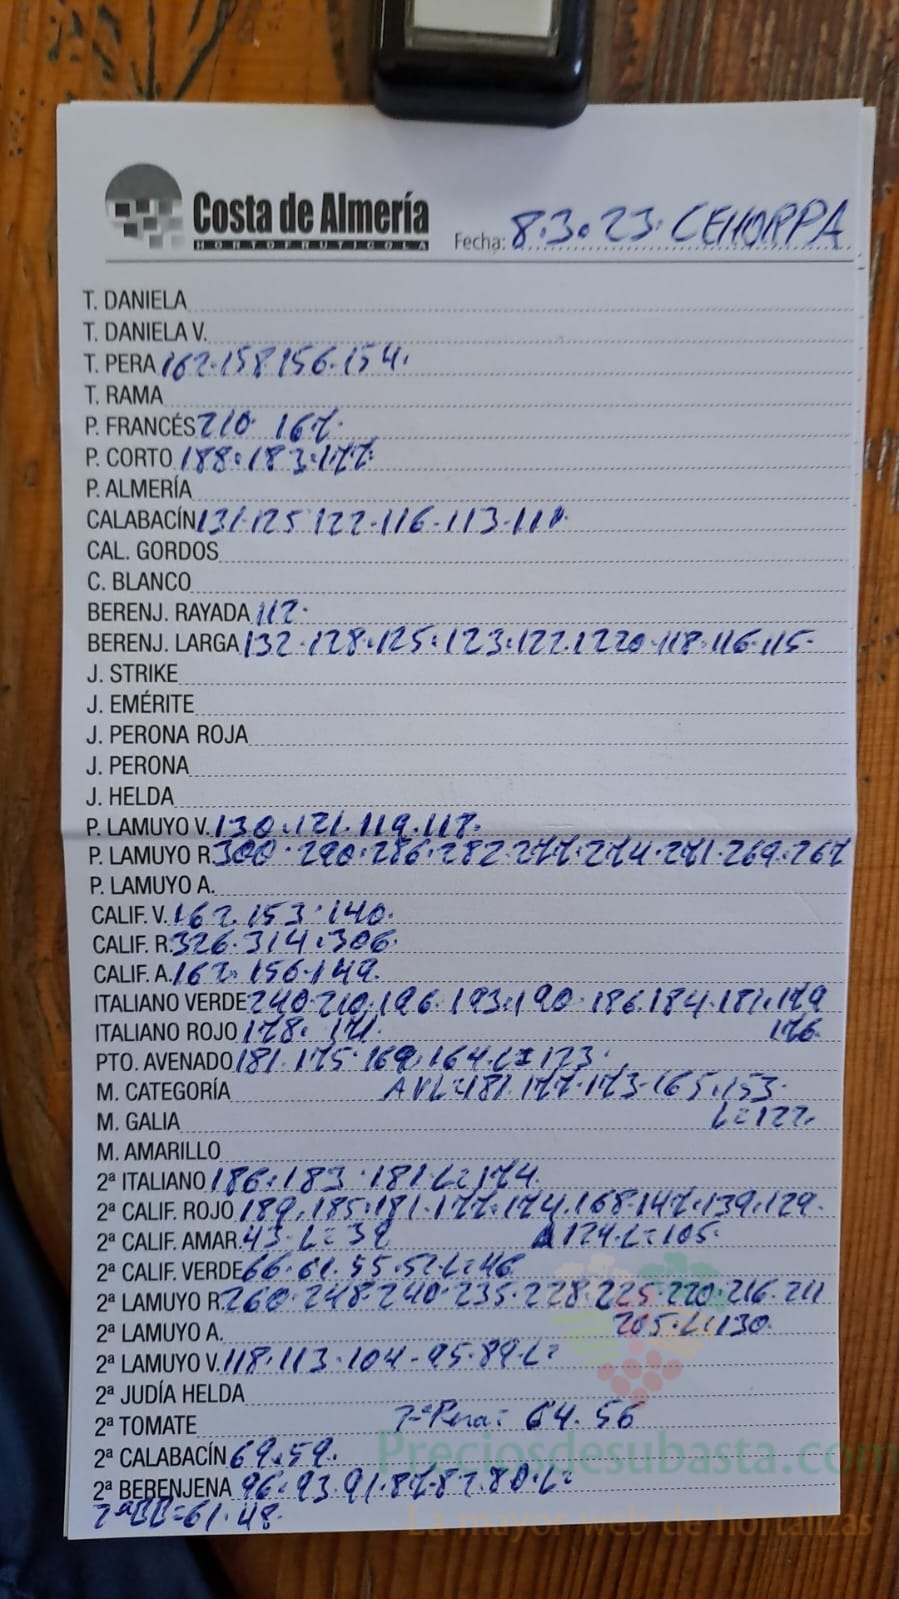 Costa de Almería
HORTOFRUTICOLA
Fecha: 8.3.23. CEHORPA
T. DANIELA
T. DANIELA V.
T. PERA 162.158 156.154.
T. RAMA
P. FRANCÉS 210 167.
P. CORTO 188.183.177.
P. ALMERÍA
CALABACÍN 131.125 122-116-113.111.
CAL. GORDOS
C. BLANCO
BERENJ. RAYADA 112.
BERENJ. LARGA 132.128.125.123.122.1220.118.116.115-
J. STRIKE
J. EMÉRITE
J. PERONA ROJA
J. PERONA
J. HELDA
P. LAMUYO V. 130.121.119.118.
P. LAMUYO R. 300.290.286.282.277.274.271.269.267
P. LAMUYO A.
CALIF. V. 162.153.140.
CALIF. R. 326.314.306.
CALIF. A. 167. 156.149.
ITALIANO VERDE 240.210.196.193.190 186.184.181.179
176.
ITALIANO ROJO 178. 171.
PTO. AVENADO 181.175.169.164.L=123.
M. CATEGORÍA AVL=181.177.173.165.153.
M. GALIA L=122.
M. AMARILLO
2ª ITALIANO 186.183.181.L=174.
2ª CALIF. ROJO 189.185.181.177.174.168.147.139.129.
2ª CALIF. AMAR. 43.L=39 124.L=105.
2ª CALIF. VERDE 66.61.55.52.L=46
2ª LAMUYO R. 260.248.240.235.228.225.220.216.211
205.L=130.
2ª LAMUYO A.
2ª LAMUYO V. 118.113.104-95.89.L=
2ª JUDÍA HELDA
2ª TOMATE 2ª Pera= 64.56
2ª CALABACÍN 69.59.
2ª BERENJENA 96.93.91.87.82.80.L=
2ªBB=61.48.
Preciosdesubasta.com
La mayor web de hortalizas